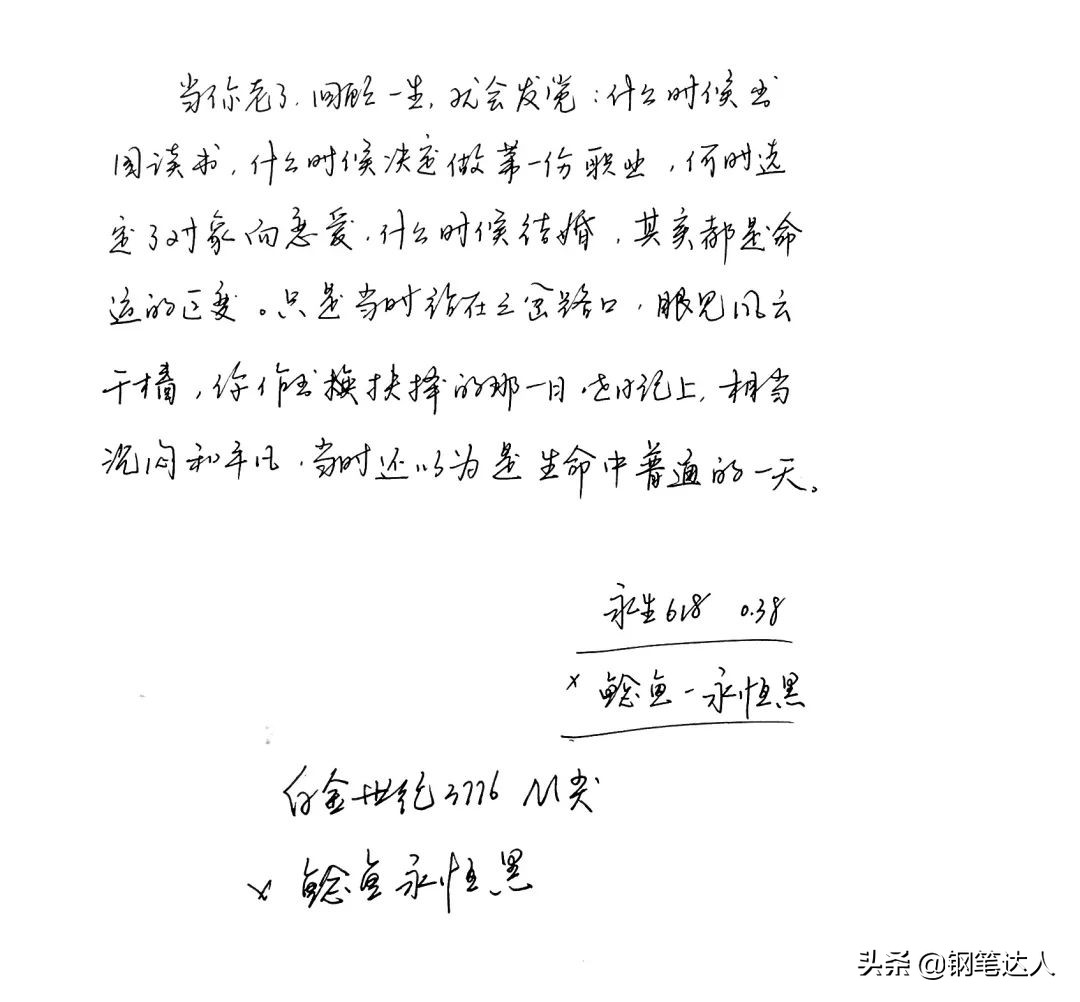 当你老了,回顾一生,就会发觉:什么时候出
国读书,什么时候决定做第一份职业,何时选
定了对象而恋爱,什么时候结婚,其实都是命
运的巨变。只是当时站在三岔路口,眼见风云
千樯,你作出抉择的那一日,在日记上,相当
沉闷和平凡,当时还以为是生命中普通的一天。
永生618 0.38
× 鲶鱼-永恒黑
白金世纪3776 M尖
× 鲶鱼永恒黑
头条 @钢笔达人